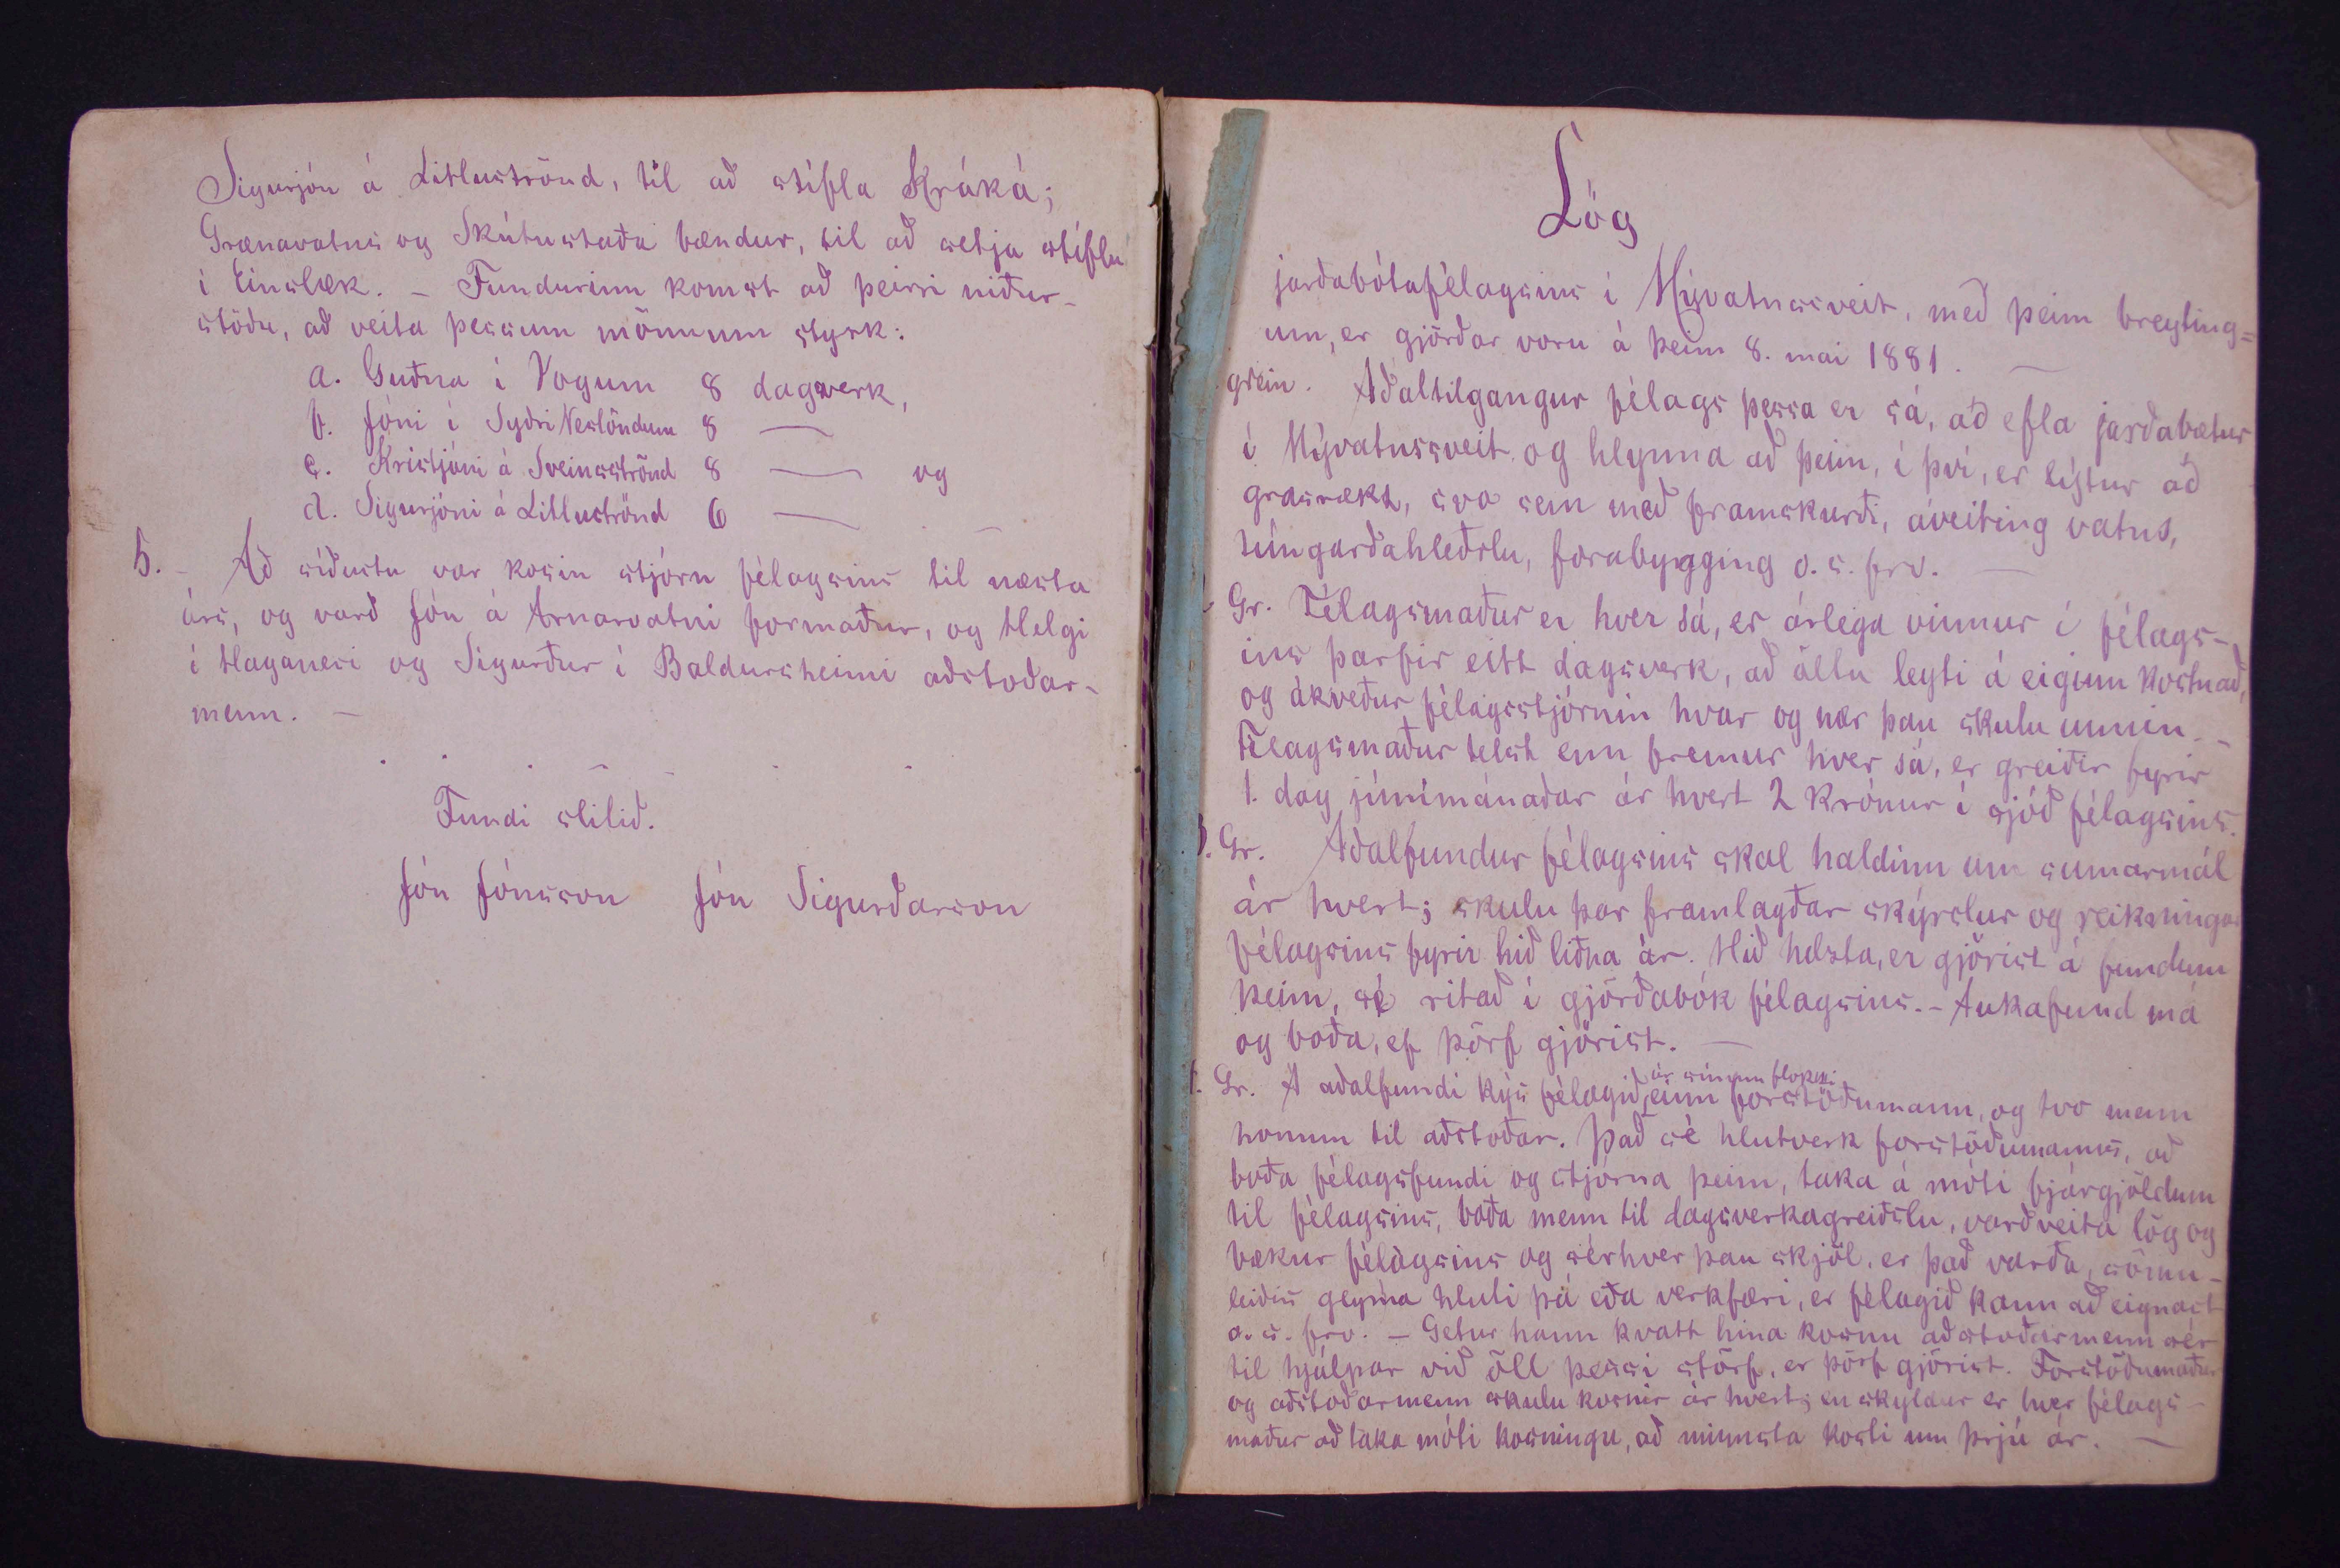 Sigurjón á Litluströnd, til að stífla Kráká;
Grænavatns og Skútustaða bændur, til að setja stíflu
í Einslæk. - Fundurinn komst að þeirri niður-
stöðu, að veita þessum mönnum styrk:
a. Guðna í Vogum 8 dagsverk,
b. Jóni í Syðri Neslöndum 8 —
c. Kristjáni á Sveinsströnd 8 — og
d. Sigurjóni á Litluströnd 6 —
5. - Að síðustu var kosin stjórn félagsins til næsta
árs, og varð Jón á Arnarvatni formaður, og Helgi
í Haganesi og Sigurður í Baldursheimi aðstoðar-
menn. —
Fundi slitið.
Jón Jónsson Jón Sigurðarson
Lög
jarðabótafélagsins í Mývatnssveit, með þeim breyting=
um, er gjörðar voru á þeim 8. mai 1881. —
grein. Aðaltilgangur félags þessa er sá, að efla jarðabætur
í Mývatnssveit og hlynna að þeim, í því, er lýtur að
grasrækt, svo sem með framskurði, áveiting vatns,
túngarðahleðslu, forabygging o. s. frv. —
Gr. Félagsmaður er hver sá, er árlega vinnur í félags-
ins þarfir eitt dagsverk, að öllu leyti á eiginn kostnað,
og ákveður félagsstjórnin hvar og nær þau skulu unnin. -
Félagsmaður telst enn fremur hver sá, er greiðir fyrir
1. dag júnímánaðar ár hvert 2 krónur í sjóð félagsins.
3. Gr. Aðalfundur félagsins skal haldinn um sumarmál
ár hvert; skulu þar framlagðar skýrslur og reikningar
félagsins fyrir hið liðna ár. Hið helzta, er gjörist á fundum
þeim, sé ritað í gjörðabók félagsins. - Aukafund má
og boða, ef þörf gjörist. —
úr sínum flokki
Gr. Á aðalfundi kýs félagið einn forstöðumann, og tvo menn
honum til aðstoðar. Það sé hlutverk forstöðumanns, að
boða félagsfundi og stjórna þeim, taka á móti fjárgjöldum
til félagsins, boða menn til dagsverkagreiðslu, varðveita lög og
bækur félagsins og sérhver þau skjöl, er það varða, sömu-
leiðis geyma hluti þá eða verkfæri, er félagið kann að eignast
o. s. frv. - Getur hann kvatt hina kosnu aðstoðarmenn sér
til hjálpar við öll þessi störf, er þörf gjörist. Forstöðumaður
og aðstoðarmenn skulu kosnir ár hvert; en skyldur er hver félags-
maður að taka móti kosningu, að minnsta kosti um þrjú ár. —